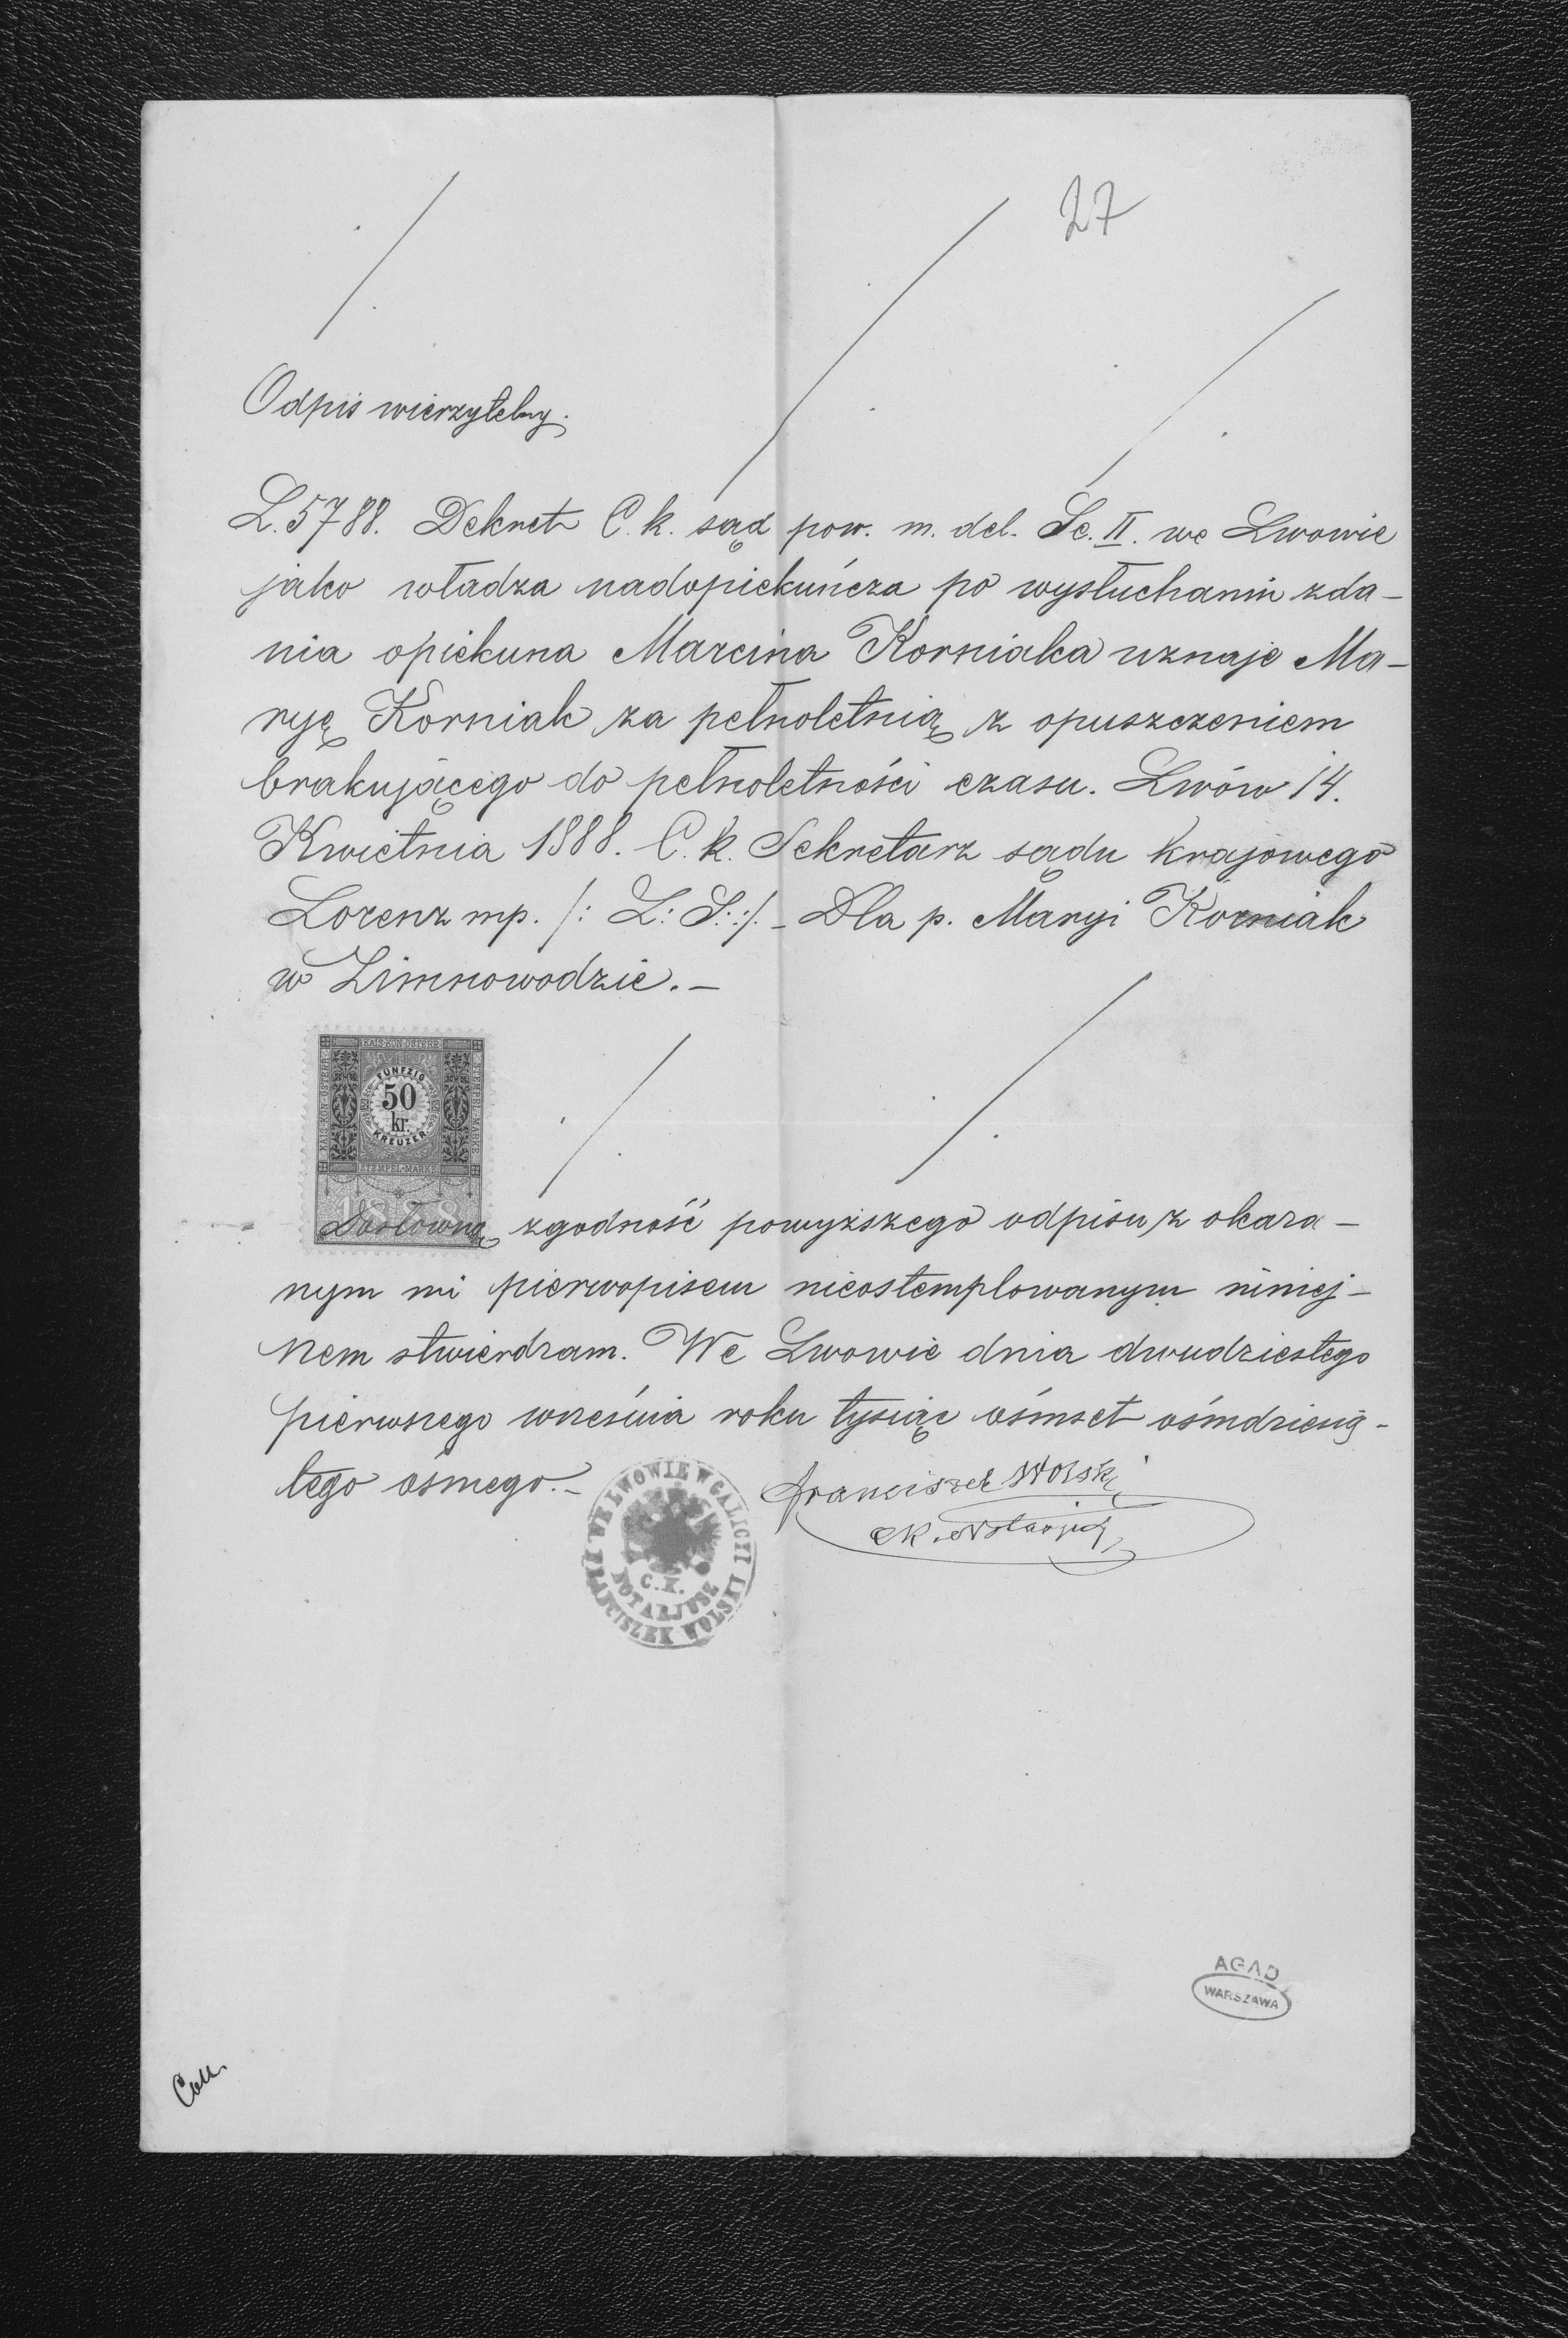 27
Odpis wierzytelny.
L. 5788. Dekret C. k. sąd pow. m. del. Sc. II. we Lwowie
jako władza nadopiekuńcza po wysłuchaniu zda-
nia opiekuna Marcina Korniaka uznaje Ma-
ryę Korniak za pełnoletnią z opuszczeniem
brakującego do pełnoletności czasu. Lwów 14.
Kwietnia 1888. C. k. Sekretarz sądu krajowego
Lorenz mp. /: L: S: :/. - Dla p. Maryi Korniak
w Zimnowodzie. -
KAIS·KÖN·ÖSTERR·
KAIS·KÖN·ÖSTERR· STEMPEL-MARKE
FÜNFZIG
50
kr.
KREUZER
STEMPEL-MARKE
1888
Dosłowną zgodność powyższego odpisu z okaza-
nym mi pierwopisem nieostemplowanym niniej-
szem stwierdzam. We Lwowie dnia dwudziestego
pierwszego września roku tysiąc ośmset ośmdziesią-
tego ósmego. -
Franciszek Wolski
ck. Notarjusz
WE LWOWIE W GALICYI
C. K.
NOTARJUSZ
FRANCISZEK WOLSKI
AGAD
WARSZAWA